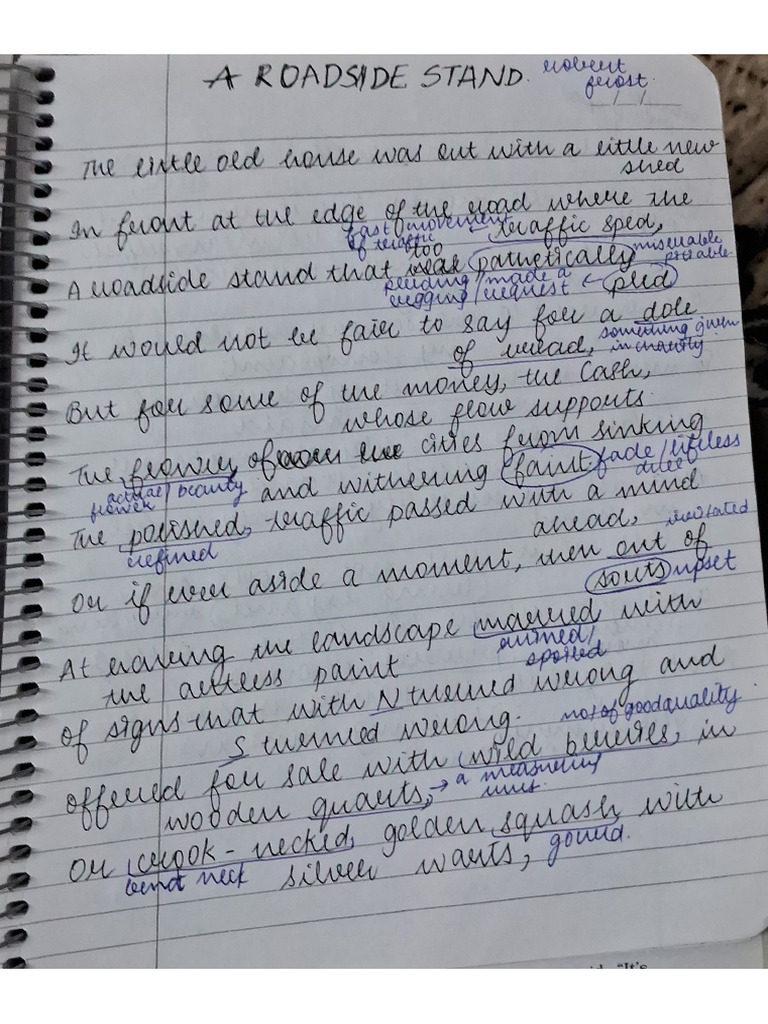 A ROADSIDE STAND. Robert
frost.
The little old house was out with a little new
shed
In front at the edge of the road where the
fast movement ← traffic sped,
of traffic
A roadside stand that too pathetically miserable
pitiable
pleading/made a ← pled
begging/request
It would not be fair to say for a dole
of bread, something given
in charity
But for some of the money, the cash,
whose flow supports.
The flower of cities from sinking
and withering faint fade/lifeless
actual/beauty
flower
The polished, traffic passed with a mind
ahead,
refined
Or if ever aside a moment, then out of
sorts upset
At having the landscape marred with
the artless paint
ruined/
spoiled
of signs that with N turned wrong and
S turned wrong. not of good quality.
offered for sale with wild berries, in
wooden quarts, → a measuring
unit.
Or crook-necked, golden squash with
bent neck silver warts, gourd.
"It's